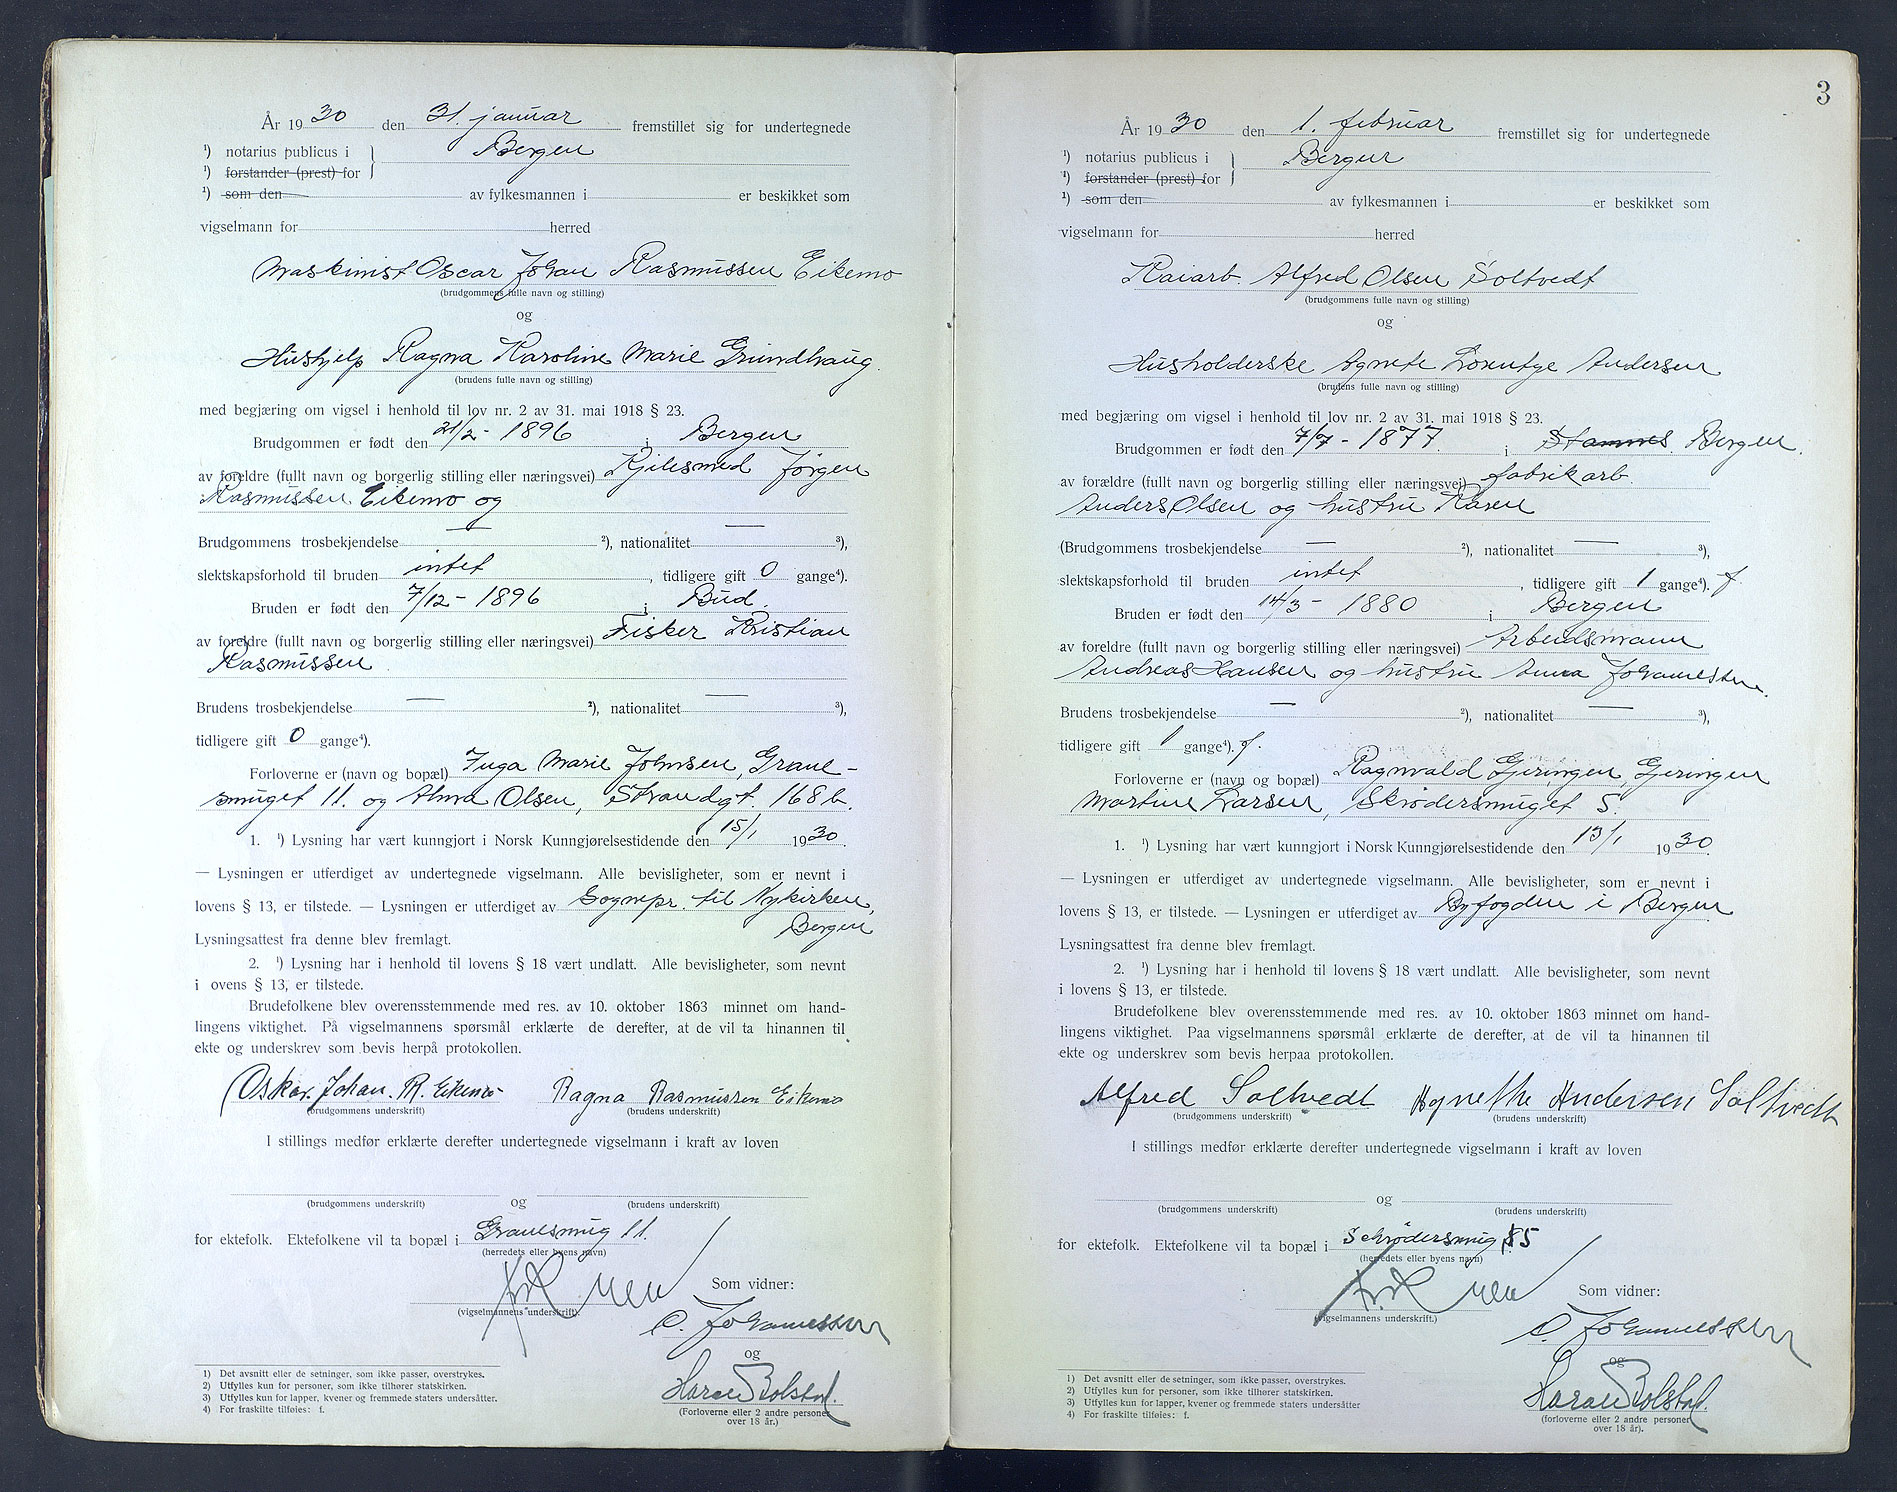 År 1930 den 31. januar fremstillet sig for undertegnede
¹) notarius publicus i Bergen
¹) forstander (prest) for
¹) som den av fylkesmannen i er beskikket som
vigselmann for herred
Maskinist Oscar Johan Rasmussen Eikemo
(brudgommens fulle navn og stilling)
og
Hushjelp Ragna Karoline Marie Grundhaug.
(brudens fulle navn og stilling)
med begjæring om vigsel i henhold til lov nr. 2 av 31. mai 1918 § 23.
Brudgommen er født den 21/2 - 1896 i Bergen
av foreldre (fullt navn og borgerlig stilling eller næringsvei) Kjelesmed Jørgen
Rasmussen Eikemo og
—
Brudgommens trosbekjendelse ²), nationalitet — ³),
slektskapsforhold til bruden intet, tidligere gift 0 gange⁴).
Bruden er født den 7/12 - 1896 i Bud.
av foreldre (fullt navn og borgerlig stilling eller næringsvei) Fisker Kristian
Rasmussen
Brudens trosbekjendelse — ²), nationalitet — ³),
tidligere gift 0 gange⁴).
Forloverne er (navn og bopæl) Inga Marie Johnsen, Graue-
smuget 11. og Alma Olsen, Strandgt. 168 b.
1. ¹) Lysning har vært kunngjort i Norsk Kunngjørelsestidende den 15/1 1930.
— Lysningen er utferdiget av undertegnede vigselmann. Alle bevisligheter, som er nevnt i
lovens § 13, er tilstede. — Lysningen er utferdiget av Sognepr. til Nykirken,
Bergen
Lysningsattest fra denne blev fremlagt.
2. ¹) Lysning har i henhold til lovens § 18 vært undlatt. Alle bevisligheter, som nevnt
i ovens § 13, er tilstede.
Brudefolkene blev overensstemmende med res. av 10. oktober 1863 minnet om hand-
lingens viktighet. På vigselmannens spørsmål erklærte de derefter, at de vil ta hinannen til
ekte og underskrev som bevis herpå protokollen.
Oskar. Johan. R. Eikemo Ragna Rasmussen Eikemo
(brudgommens underskrift) (brudens underskrift)
I stillings medfør erklærte derefter undertegnede vigselmann i kraft av loven
og
(brudgommens underskrift) (brudens underskrift)
for ektefolk. Ektefolkene vil ta bopæl i Grauesmug 11.
(herredets eller byens navn)
Som vidner:
(vigselmannens underskrift).
O. Johannessen
og
Harald Bolstad.
(Forloverne eller 2 andre personer
over 18 år.)
1) Det avsnitt eller de setninger, som ikke passer, overstrykes.
2) Utfylles kun for personer, som ikke tilhører statskirken.
3) Utfylles kun for lapper, kvener og fremmede staters undersåtter.
4) For fraskilte tilføies: f.
3
År 1930 den 1. februar fremstillet sig for undertegnede
¹) notarius publicus i Bergen
¹) forstander (prest) for
¹) som den av fylkesmannen i er beskikket som
vigselmann for herred
Kaiarb. Alfred Olsen Soltvedt
(brudgommens fulle navn og stilling)
og
Husholderske Agnete Lorentze Andersen
(brudens fulle navn og stilling)
med begjæring om vigsel i henhold til lov nr. 2 av 31. mai 1918 § 23.
Brudgommen er født den 7/7 - 1877. i Stamnes. Bergen.
av forældre (fullt navn og borgerlig stilling eller næringsvei) fabrikarb.
Anders Olsen og hustru Karen
(Brudgommens trosbekjendelse — ²), nationalitet — ³),
slektskapsforhold til bruden intet, tidligere gift 1 gange⁴). f
Bruden er født den 14/3 - 1880 i Bergen
av foreldre (fullt navn og borgerlig stilling eller næringsvei) Arbeidsmann
Andreas Hansen og hustru Anna Johannessen.
Brudens trosbekjendelse — ²), nationalitet — ³),
tidligere gift 1 gange⁴). f.
Forloverne er (navn og bopæl) Ragnvald Gjeringen, Gjeringen
Martine Larsen, Skrødersmuget 5.
1. ¹) Lysning har vært kunngjort i Norsk Kunngjørelsestidende den 13/1 1930.
— Lysningen er utferdiget av undertegnede vigselmann. Alle bevisligheter, som er nevnt i
lovens § 13, er tilstede. — Lysningen er utferdiget av Byfogden i Bergen
Lysningsattest fra denne blev fremlagt.
2. ¹) Lysning har i henhold til lovens § 18 vært undlatt. Alle bevisligheter, som nevnt
i lovens § 13, er tilstede.
Brudefolkene blev overensstemmende med res. av 10. oktober 1863 minnet om hand-
lingens viktighet. Paa vigselmannens spørsmål erklærte de derefter, at de vil ta hinannen til
ekte og underskrev som bevis herpaa protokollen.
Alfred Soltvedt Agnethe Andersen Soltvedt
(brudgommens underskrift) (brudens underskrift)
I stillings medfør erklærte derefter undertegnede vigselmann i kraft av loven
og
(brudgommens underskrift) (brudens underskrift)
for ektefolk. Ektefolkene vil ta bopæl i Schrødersmug 5
(herredets eller byens navn)
Som vidner:
(vigselmannens underskrift.)
O. Johannessen
og
Harald Bolstad.
(forloverne eller 2 andre personer
over 18 år).
1) Det avsnitt eller de setninger, som ikke passer, overstrykes.
2) Utfylles kun for personer, som ikke tilhører statskirken.
3) Utfylles kun for lapper, kvener og fremmede staters undersåtter
4) For fraskilte tilføies: f.